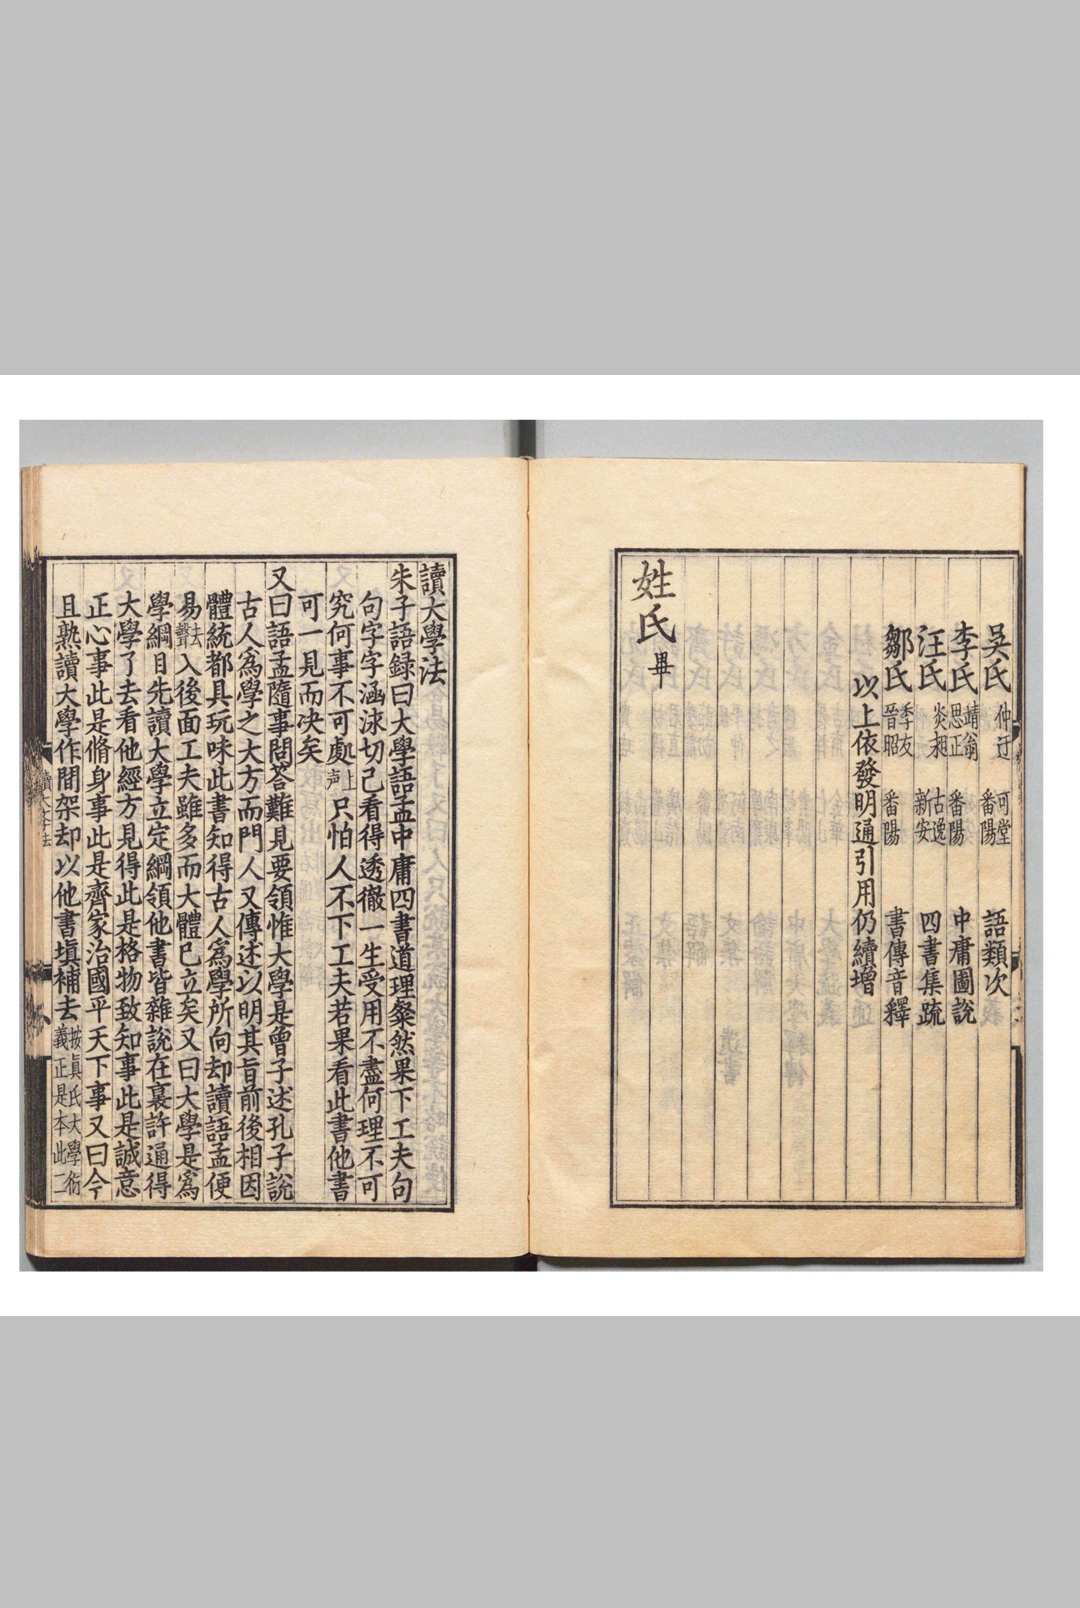 吳氏 仲迂 可堂 番陽 語類次
李氏 靖翁 思正 番陽 中庸圖說
汪氏 炎昶 古逸 新安 四書集疏
鄒氏 季友 晉昭 番陽 書傳音釋
以上依發明通引用仍續增
姓氏畢
讀大學法
朱子語録曰大學語孟中庸四書道理粲然果下工夫句
句字字涵泳切己看得透徹一生受用不盡何理不可
究何事不可處上声只怕人不下工夫若果看此書他書
可一見而决矣
又曰語孟隨事問荅難見要領惟大學是曾子述孔子說
古人爲學之大方而門人又傳述以明其旨前後相因
體統都具玩味此書知得古人爲學所向却讀語孟便
易去聲入後面工夫雖多而大體已立矣又曰大學是爲
學綱目先讀大學立定綱領他書皆雜說在裏許通得
大學了去看他經方見得此是格物致知事此是誠意
正心事此是脩身事此是齊家治國平天下事又曰今
且熟讀大學作間架却以他書填補去按真氏大學衍義正是本此二
讀大學法